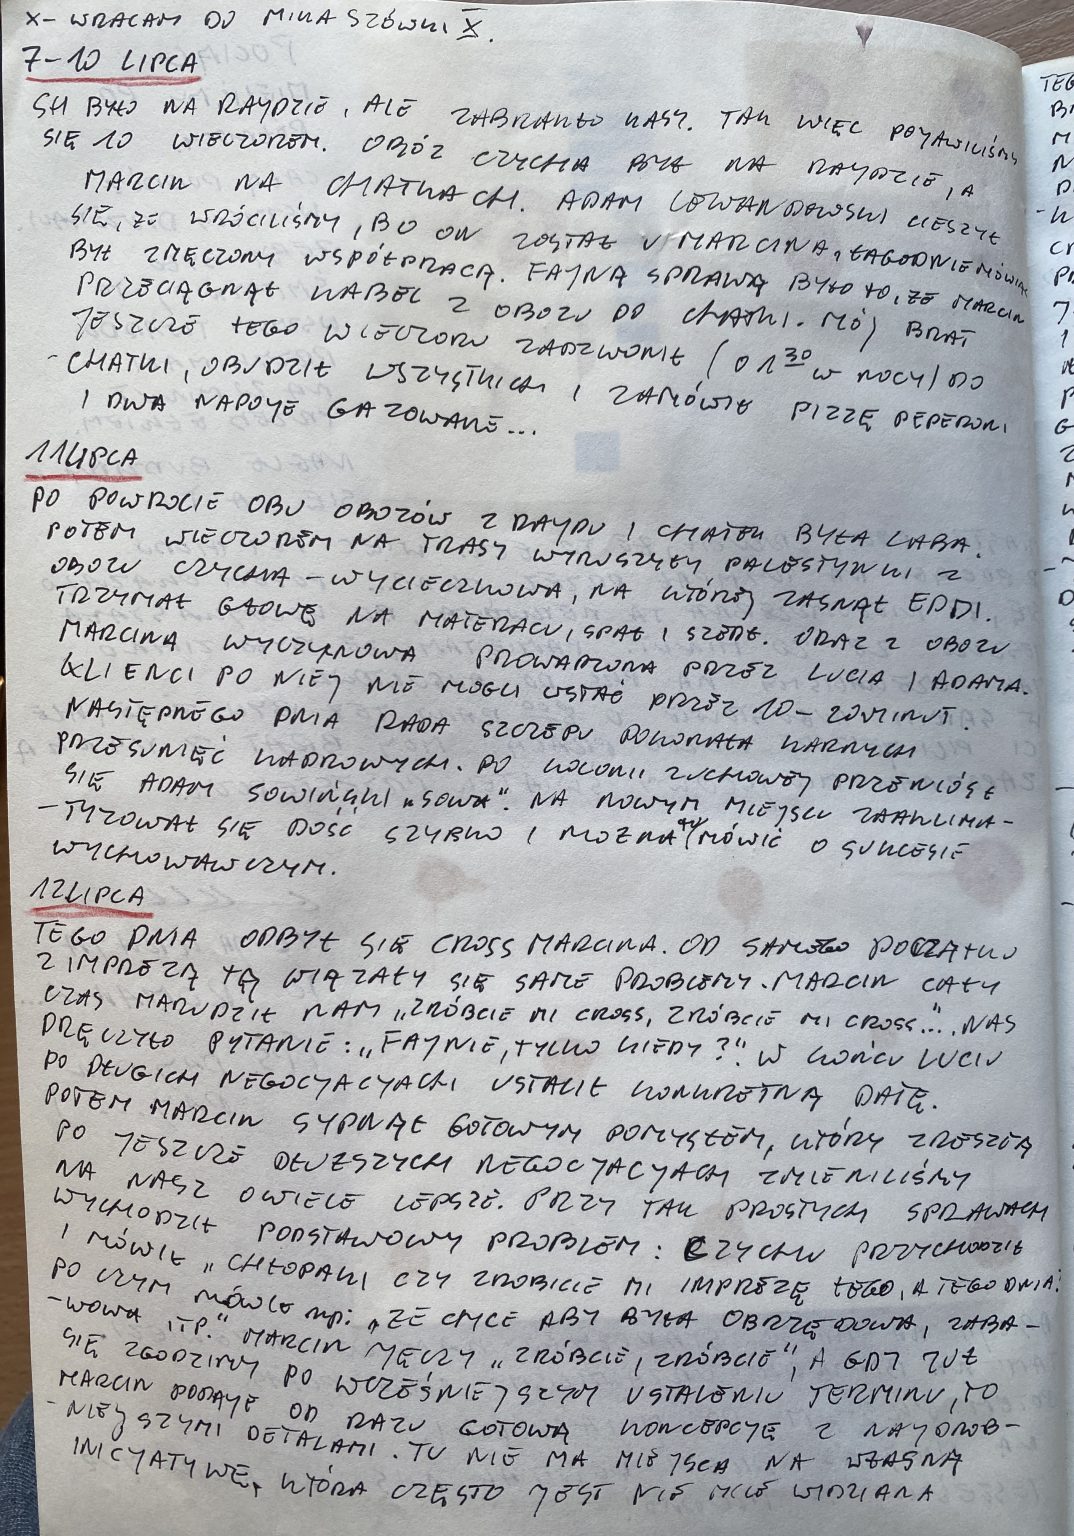 X- WRACAM DO MIKASZÓWKI X.
7-10 LIPCA
SH BYŁO NA RAYDZIE, ALE ZABRAKŁO KASY. TAK WIĘC POYAWILIŚMY
SIĘ 10 WIECZOREM. OBÓZ CZYCHA BYŁ NA RAYDZIE, A
MARCIN NA CHATKACH. ADAM LEWANDOWSKI CIESZYŁ
SIĘ, ŻE WRÓCILIŚMY, BO ON ZOSTAŁ U MARCINA, ŁAGODNIE MÓWIĄC
BYŁ ZMĘCZONY WSPÓŁPRACĄ. FAJNĄ SPRAWĄ BYŁO TO, ŻE MARCIN
PRZECIĄGNĄŁ KABEL Z OBOZU DO CHATKI. MÓJ BRAT
JESZCZE TEGO WIECZORU ZADZWONIŁ (O 1 30 W NOCY) DO
-CHATKI, OBUDZIŁ WSZYSTKICH I ZAMÓWIŁ PIZZĘ PEPERONI
I DWA NAPOJE GAZOWANE...
11 LIPCA
PO POWROCIE OBU OBOZÓW Z RAYDU I CHATEK BYŁA LABA.
POTEM WIECZOREM NA TRASY WYRUSZYŁY PALESTYNKI Z
OBOZU CZYCHA - WYCIECZKOWA, NA KTÓREJ ZASNĄŁ EDDI.
TRZYMAŁ GŁOWĘ NA MATERACU, SPAŁ I SZEDŁ. ORAZ Z OBOZU
MARCINA WYCZYNOWA PROWADZONA PRZEZ LUCIA I ADAMA.
KLIENCI PO NIEJ NIE MOGLI WSTAĆ PRZEZ 10-20 MINUT.
NASTĘPNEGO DNIA RADA SZCZEPU DOKONAŁA KARNYCH
PRZESUNIĘĆ KADROWYCH. PO KOLONII ZUCHOWEJ PRZENIÓSŁ
SIĘ ADAM SOWIŃSKI „SOWA". NA NOWYM MIEJSCU ZAAKLIMA-
-TYZOWAŁ SIĘ DOŚĆ SZYBKO I MOŻNA TU MÓWIĆ O SUKCESIE
WYCHOWAWCZYM.
12 LIPCA
TEGO DNIA ODBYŁ SIĘ CROSS MARCINA. OD SAMEGO POCZĄTKU
Z IMPREZĄ TĄ WIĄZAŁY SIĘ SAME PROBLEMY. MARCIN CAŁY
CZAS MARUDZIŁ NAM „ZRÓBCIE MI CROSS, ZRÓBCIE MI CROSS...". NAS
DRĘCZYŁO PYTANIE: „FAJNIE, TYLKO KIEDY?" W KOŃCU LUCIU
PO DŁUGICH NEGOCYACYACH USTALIŁ KONKRETNĄ DATĘ.
POTEM MARCIN SYPNĄŁ GOTOWYM POMYSŁEM, KTÓRY ZRESZTĄ
PO JESZCZE DŁUŻSZYCH NEGOCYACYACH ZMIENILIŚMY
NA NASZ O WIELE LEPSZE. PRZY TAK PROSTYCH SPRAWACH
WYCHODZIŁ PODSTAWOWY PROBLEM: CZYCHU PRZYCHODZIŁ
I MÓWIŁ „CHŁOPAKI CZY ZROBICIE MI IMPREZĘ TEGO, A TEGO DNIA?
PO CZYM MÓWIŁ np: „ŻE CHCE ABY BYŁA OBRZĘDOWA, ZABA-
-WOWA ITP." MARCIN JĘCZY „ZRÓBCIE, ZRÓBCIE", A GDY JUŻ
SIĘ ZGODZIMY PO WCZEŚNIEJSZYM USTALENIU TERMINU, TO
MARCIN PODAJE OD RAZU GOTOWĄ KONCEPCJĘ Z NAYDROB-
-NIEJSZYMI DETALAMI. TU NIE MA MIEJSCA NA WŁASNĄ
INICYATYWĘ, KTÓRA CZĘSTO JEST NIE MILE WIDZIANA